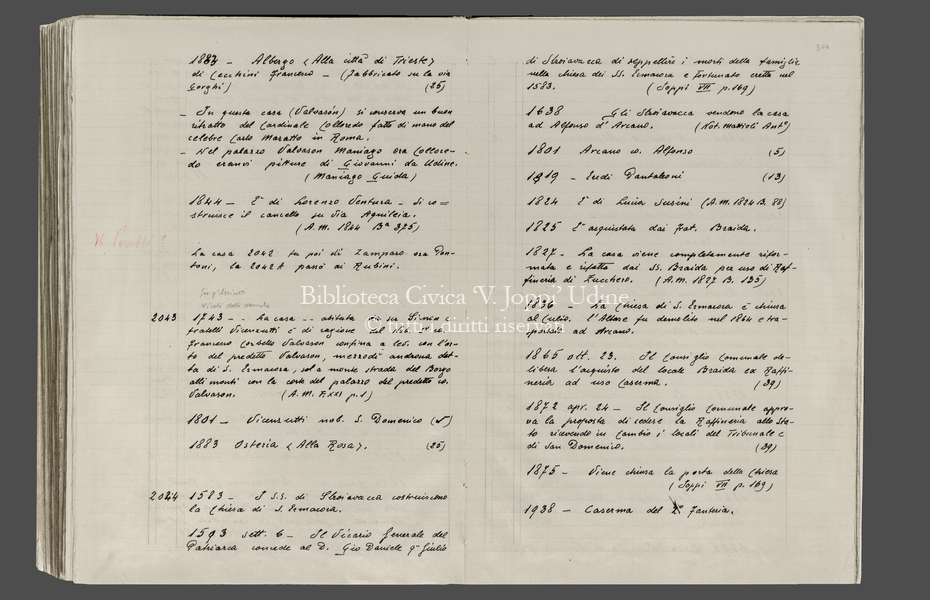 1887 - Albergo "Alla città di Trieste"
di Cecchini Francesco - (fabbricato su la via
Gorghi) (25)
- In questa casa (Valvason) si conserva un buon
ritratto del Cardinale Colloredo fatto di mano del
celebre Carlo Maratto in Roma.
- Nel palazzo Valvason Maniago ora Collore-
do eranvi pitture di Giovanni da Udine.
(Maniago Guida)
1844 - È di Lorenzo Ventura - Si co=
struisce il cancello su via Aquileia.
(A.M. 1844 Bª 375)
La casa 2042 fu poi di Zamparo ora Pon-
toni, la 2042A passò ai Rubini.
Vicolo della
2043 1743 - .. La casa .. abitata di ser Simon
fratelli Vicenzutti è di ragione del Nob. S. Co.
Francesco Corbello Valvason confina a lev. con l'or-
to del predetto Valvason, mezzodì androna det-
ta di S. Ermacora, sol a monte strada del Borgo
alli monti con la corte del palazzo del predetto co.
Valvason. (A.M. F. XXI p. 1)
1801 - Vicenzutti nob. S. Domenico (5)
1883 Osteria "Alla Rosa". (25)
2024 1583 - I SS. di Strasavacca costruiscono
la Chiesa di S. Ermacora.
1593 sett. 6 - Il Vicario Generale del
Patriarca concede al D. Gio Daniele qm Giulio
304
di Strasavacca di seppellire i morti della famiglia
nella chiesa dei SS. Ermacora e Fortunato eretta nel
1583. (Joppi VII p. 169)
1638 Gli Strasavacca vendono la casa
ad Alfonso d'Arcano. (Not. Mattioli Antº)
1801 Arcano co. Alfonso (5)
1819 - Eredi Pantaleoni (13)
1824 È di Luigi Susini (A.M. 1824 B. 88)
1825 È acquistata dai frat. Braida.
1827 - La casa viene completamente rifor-
mata e rifatta dai SS. Braida per uso di Raf-
fineria di Zucchero. (A.M. 1827 B. 135)
Biblioteca Civica 'V. Joppi' Udine
© tutti i diritti riservati
1836 - La Chiesa di S. Ermacora è chiusa
al culto. l'Altare fu demolito nel 1864 e tra-
sportato ad Arcano.
1865 ott. 23. Il Consiglio Comunale de-
libera l'acquisto del locale Braida ex Raffi-
neria ad uso Caserma. (39)
1872 apr. 24 - Il Consiglio Comunale appro-
va la proposta di cedere la Raffineria allo Sta-
to ricevendo in cambio i locali del Tribunale e
di San Domenico. (39)
1875 - Viene chiusa la porta della Chiesa
(Joppi VII p. 169)
1938 - Caserma del 2º Fanteria.